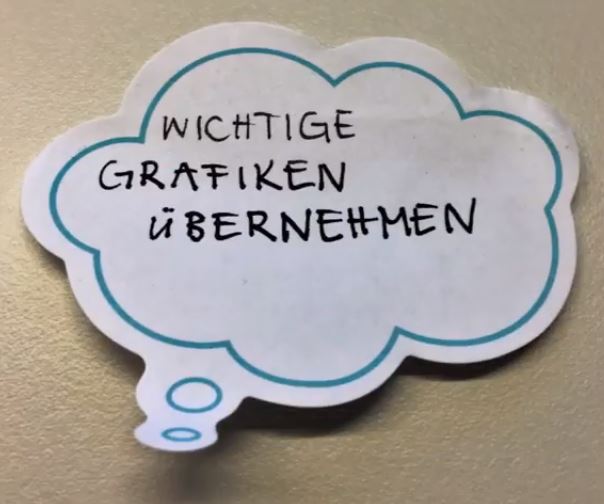 WICHTIGE
GRAFIKEN
ÜBERNEHMEN